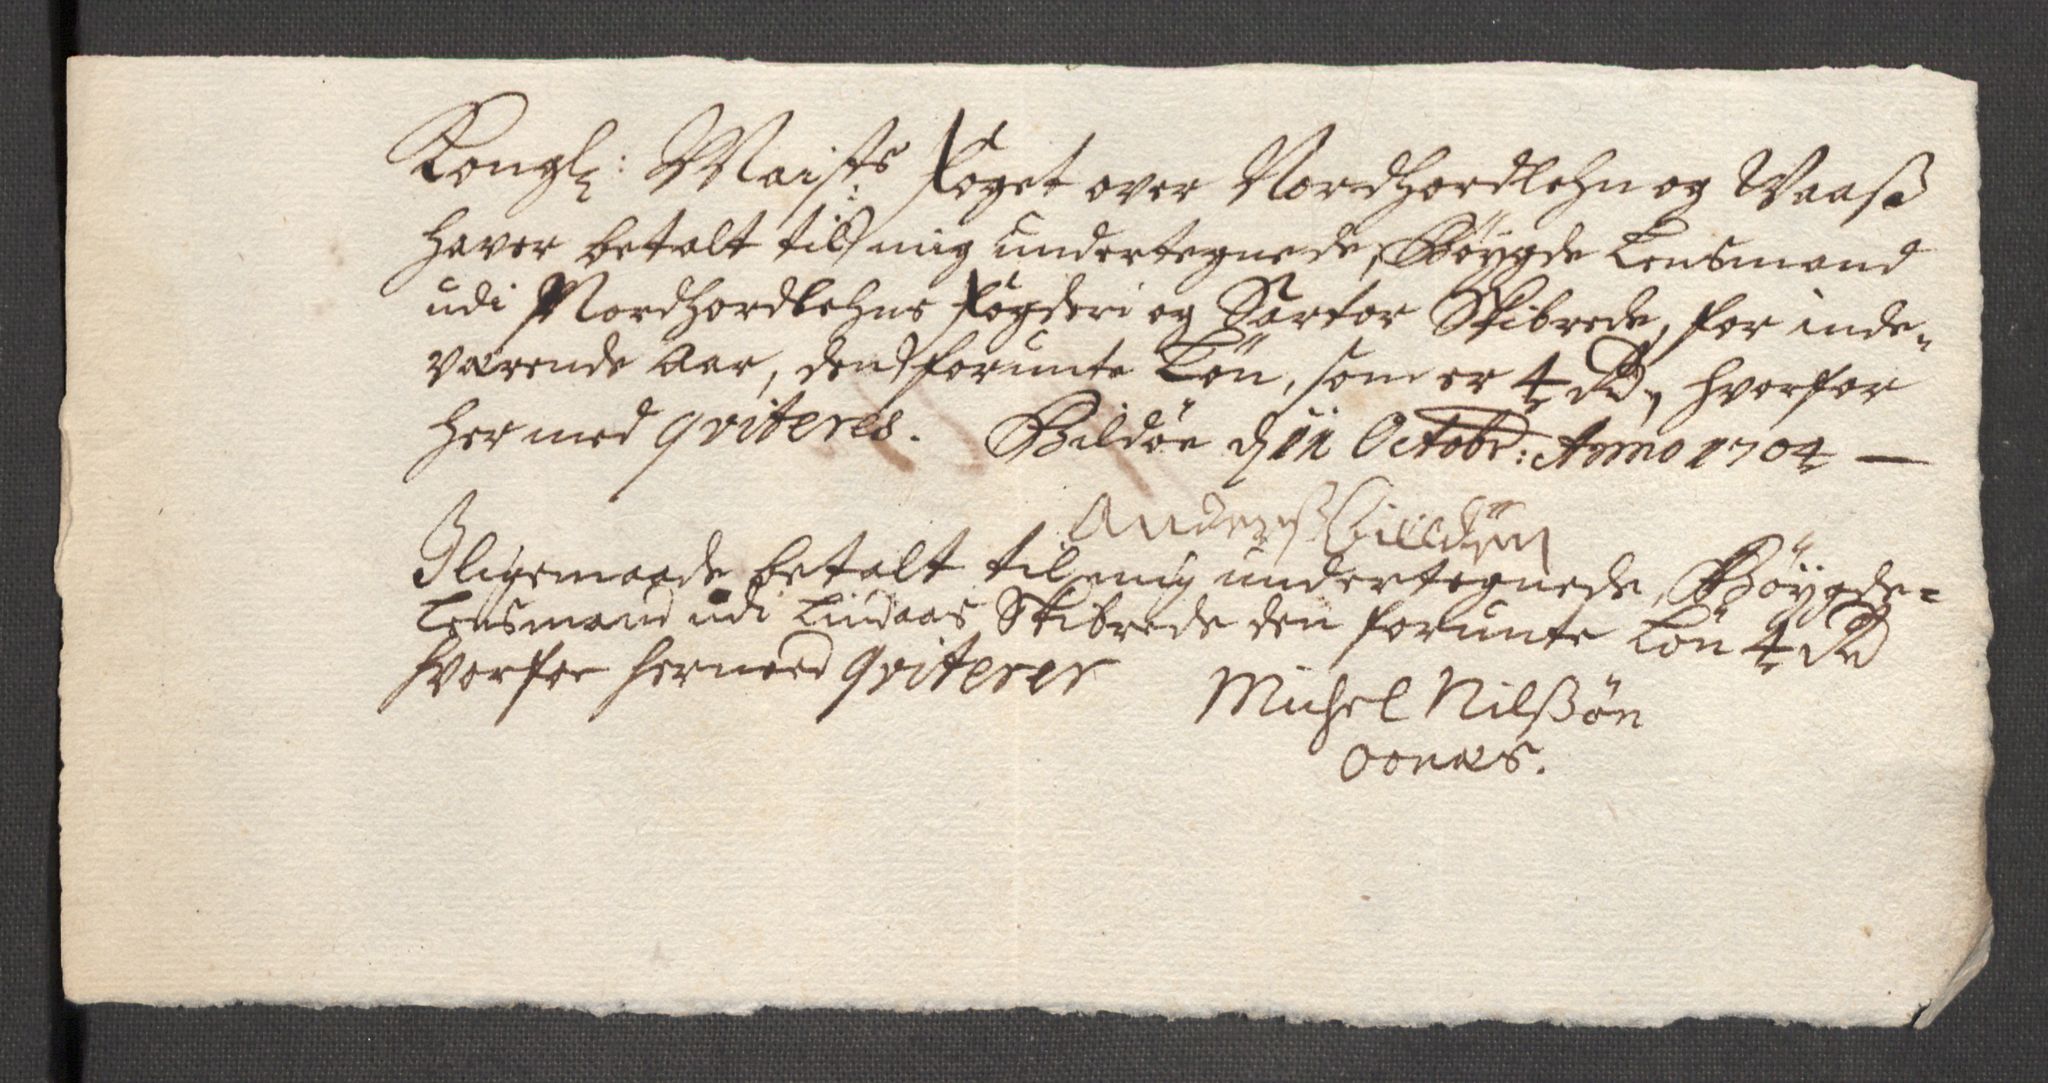 Kongl: Maists Foget over Nordhordlehn og Waaß
hafver betalt till mig undertegnede, Bøygde Lensmand
udi Nordhordlehns Fogderi og Sartor Skibrede, for inde-
værende Aar, dend forunte Løn, som er 4 Rd, hvorfor
hermed qviteres. Bildøe d 11 Octobr: Anno 1704 —
Anderß Billdøen
Jligemaade betalt til mig undertegnede, Bøygde-
Lensmand udi Lindaas Skibrede den forunte Løn 4 Rd
hvorfor hermed qviterer
Michel Nilßøn